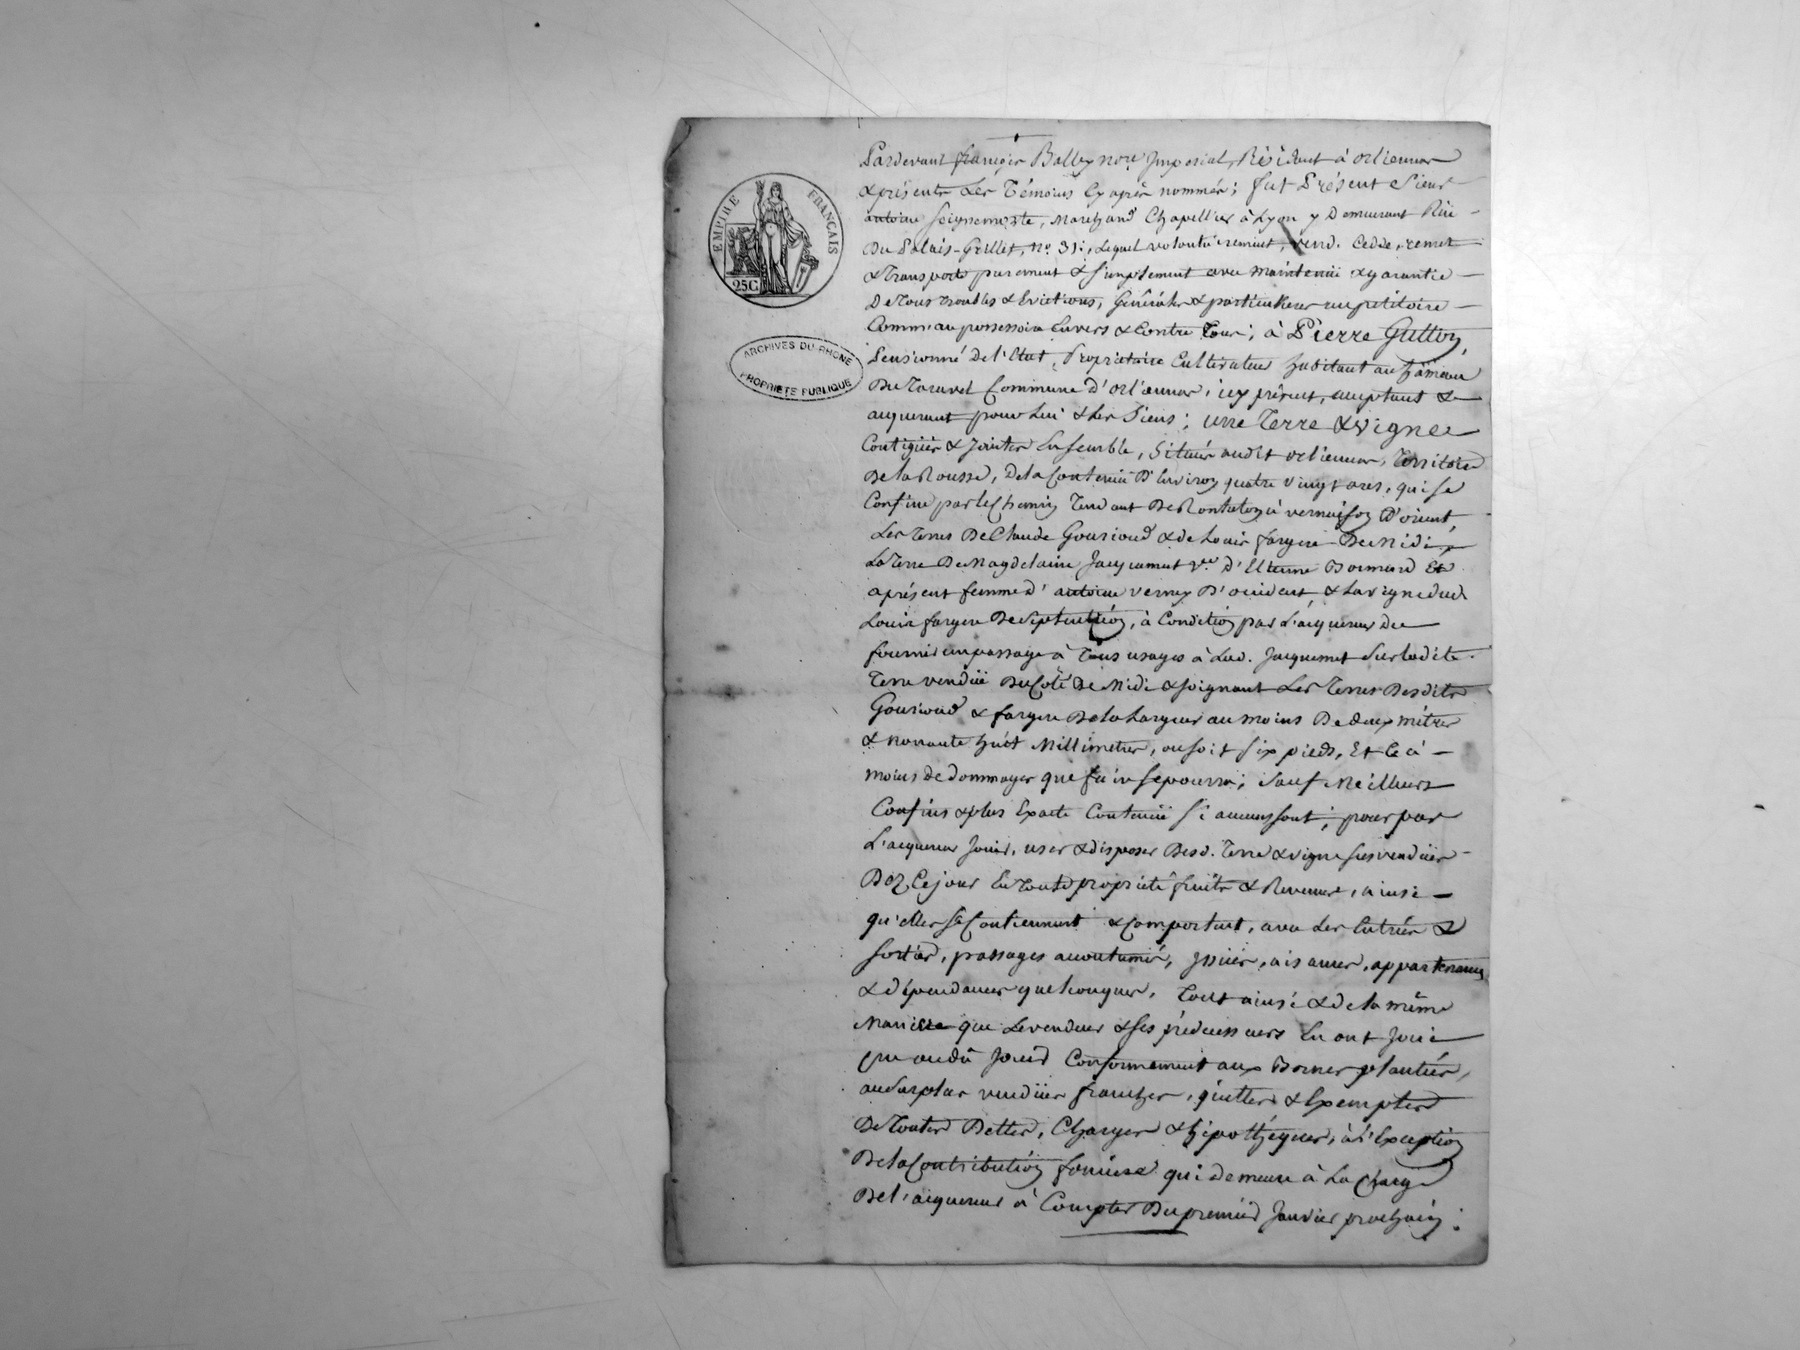 EMPIRE FRANÇAIS
25C
ARCHIVES DU RHONE
PROPRIETE PUBLIQUE
Pardevant françois Balley nore Imperial, Résidant à orliennas
& présents Les Témoins cy après nommés; fut Présent sieur
antoine Seignemorte, Marchand Chapellier à Lyon y Demeurant Rüe
Du Palais-Grillet, No. 31; Lequel volontairement, vend. Cedde, remet
& Transporte purement & simplement avec maintenüe & garantie
De Tous Troubles & Evictions, Générales & particulieres au petitoire
Comme au possessoire Envers & Contre Tous; à Pierre Guillon,
Pensionné De l'Etat, Propriétaire Cultivateur habitant au hameau
Du Taravel Commune D'orliennas, icy présent, acceptant &
acquerant pour Lui & Les Siens; une Terre & vigne
Contiguës & Jointes Ensemble, Situées audit orliennas, Territoire
De la Rousse, De la Contenüe D'Environ quatre vingt ares, qui se
Confine par le Chemin Tendant De Rontalon à vernaison D'orient,
Les Terres De Claude Gourioud & de Louis fargere De Midi,
La Terre De Magdelaine Jacquemet ve. d'Etienne Bonnard Et
aprésent femme d'antoine vernay D'occident & La vigne dud.
Louis fargere De Septentrion, à Condition par L'acquereur de
fournir un passage à Tous usages à Lad. Jacquemet Sur ladite
Terre vendüe Du Coté De Midi & joignant Les Terres Desdits
Gourioud & fargere De la Largeur au moins De deux mètres
& nonante huit Millimetres, ou soit six pieds, Et Ce à
moins de dommages que faire se pourra; Sauf Meilleurs
Confins & plus Exacte Contenüe si aucuns sont; pour par
L'acquereur Jouir, user & disposer Desd. Terre & vigne sus vendües
Dez Ce jour En Toute propriété fruits & Revenus, ainsi
qu'elles se Contiennent & Comportent, avec Les Entrées &
Sorties, passages accoutumés, Issües, aisances, appartenances
& dépendances quelconques, Tout ainsi & de la même
Maniere que Le vendeur & ses prédecesseurs En ont Joui
pu ou dû Jouir Conformement aux Bornes plantées,
au Surplus vendües franches, quittes & Exemptes
De Toutes Dettes, Charges & hipothéques, à L'Exception
De la Contribution fonciere qui demeure à La Charge
De l'acquereur à Compter Du premier Janvier prochain;